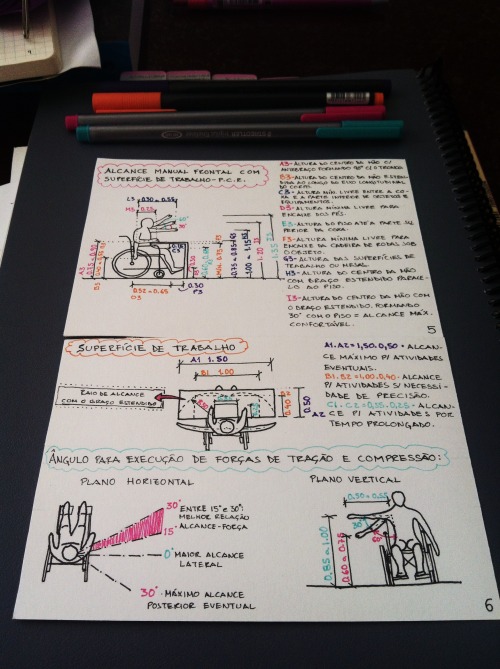 ALCANCE MANUAL FRONTAL COM
SUPERFÍCIE DE TRABALHO - P.C.R.
A3-ALTURA DO CENTRO DA MÃO C/
ANTEBRAÇO FORMANDO 90° C/ O TRONCO.
B3-ALTURA DO CENTRO DA MÃO ESTEN-
DIDA AO LONGO DO EIXO LONGITUDINAL
DO CORPO.
C3-ALTURA MÍN. LIVRE ENTRE A CO-
XA E A PARTE INFERIOR DE OBJETOS E
EQUIPAMENTOS.
D3-ALTURA MÍNIMA LIVRE PARA
ENCAIXE DOS PÉS.
E3-ALTURA DO PISO ATÉ A PARTE SU-
PERIOR DA COXA.
F3-ALTURA MÍNIMA LIVRE PARA
ENCAIXE DA CADEIRA DE RODAS SOB
O OBJETO.
G3-ALTURA DAS SUPERFÍCIES DE
TRABALHO OU MESAS.
H3-ALTURA DO CENTRO DA MÃO
COM BRAÇO ESTENDIDO PARALE-
LO AO PISO.
I3-ALTURA DO CENTRO DA MÃO COM
O BRAÇO ESTENDIDO, FORMANDO
30° COM O PISO = ALCANCE MÁX.
CONFORTÁVEL.
L3
0.50 a 0.55
0.30
P3
O3
5
SUPERFÍCIE DE TRABALHO
A1 1.50
B1 1.00
RAIO DE ALCANCE
COM O BRAÇO ESTENDIDO
0.50
A2
A1.A2 = 1,50.0,50 - ALCAN-
CE MÁXIMO P/ ATIVIDADES
EVENTUAIS.
B1.B2 = 1.00.0,40 - ALCANCE
P/ ATIVIDADES S/ NECESSI-
DADE DE PRECISÃO.
C1.C2 = 0,35.0,25 - ALCAN-
CE P/ ATIVIDADES POR
TEMPO PROLONGADO.
ÂNGULO PARA EXECUÇÃO DE FORÇAS DE TRAÇÃO E COMPRESSÃO:
PLANO HORIZONTAL
PLANO VERTICAL
30° ENTRE 15° e 30°:
MELHOR RELAÇÃO
15° ALCANCE-FORÇA
0° MAIOR ALCANCE
LATERAL
30° - MÁXIMO ALCANCE
POSTERIOR EVENTUAL
0.50 a 0.55
0.85 a 1.00
0.60 a 0.75
6